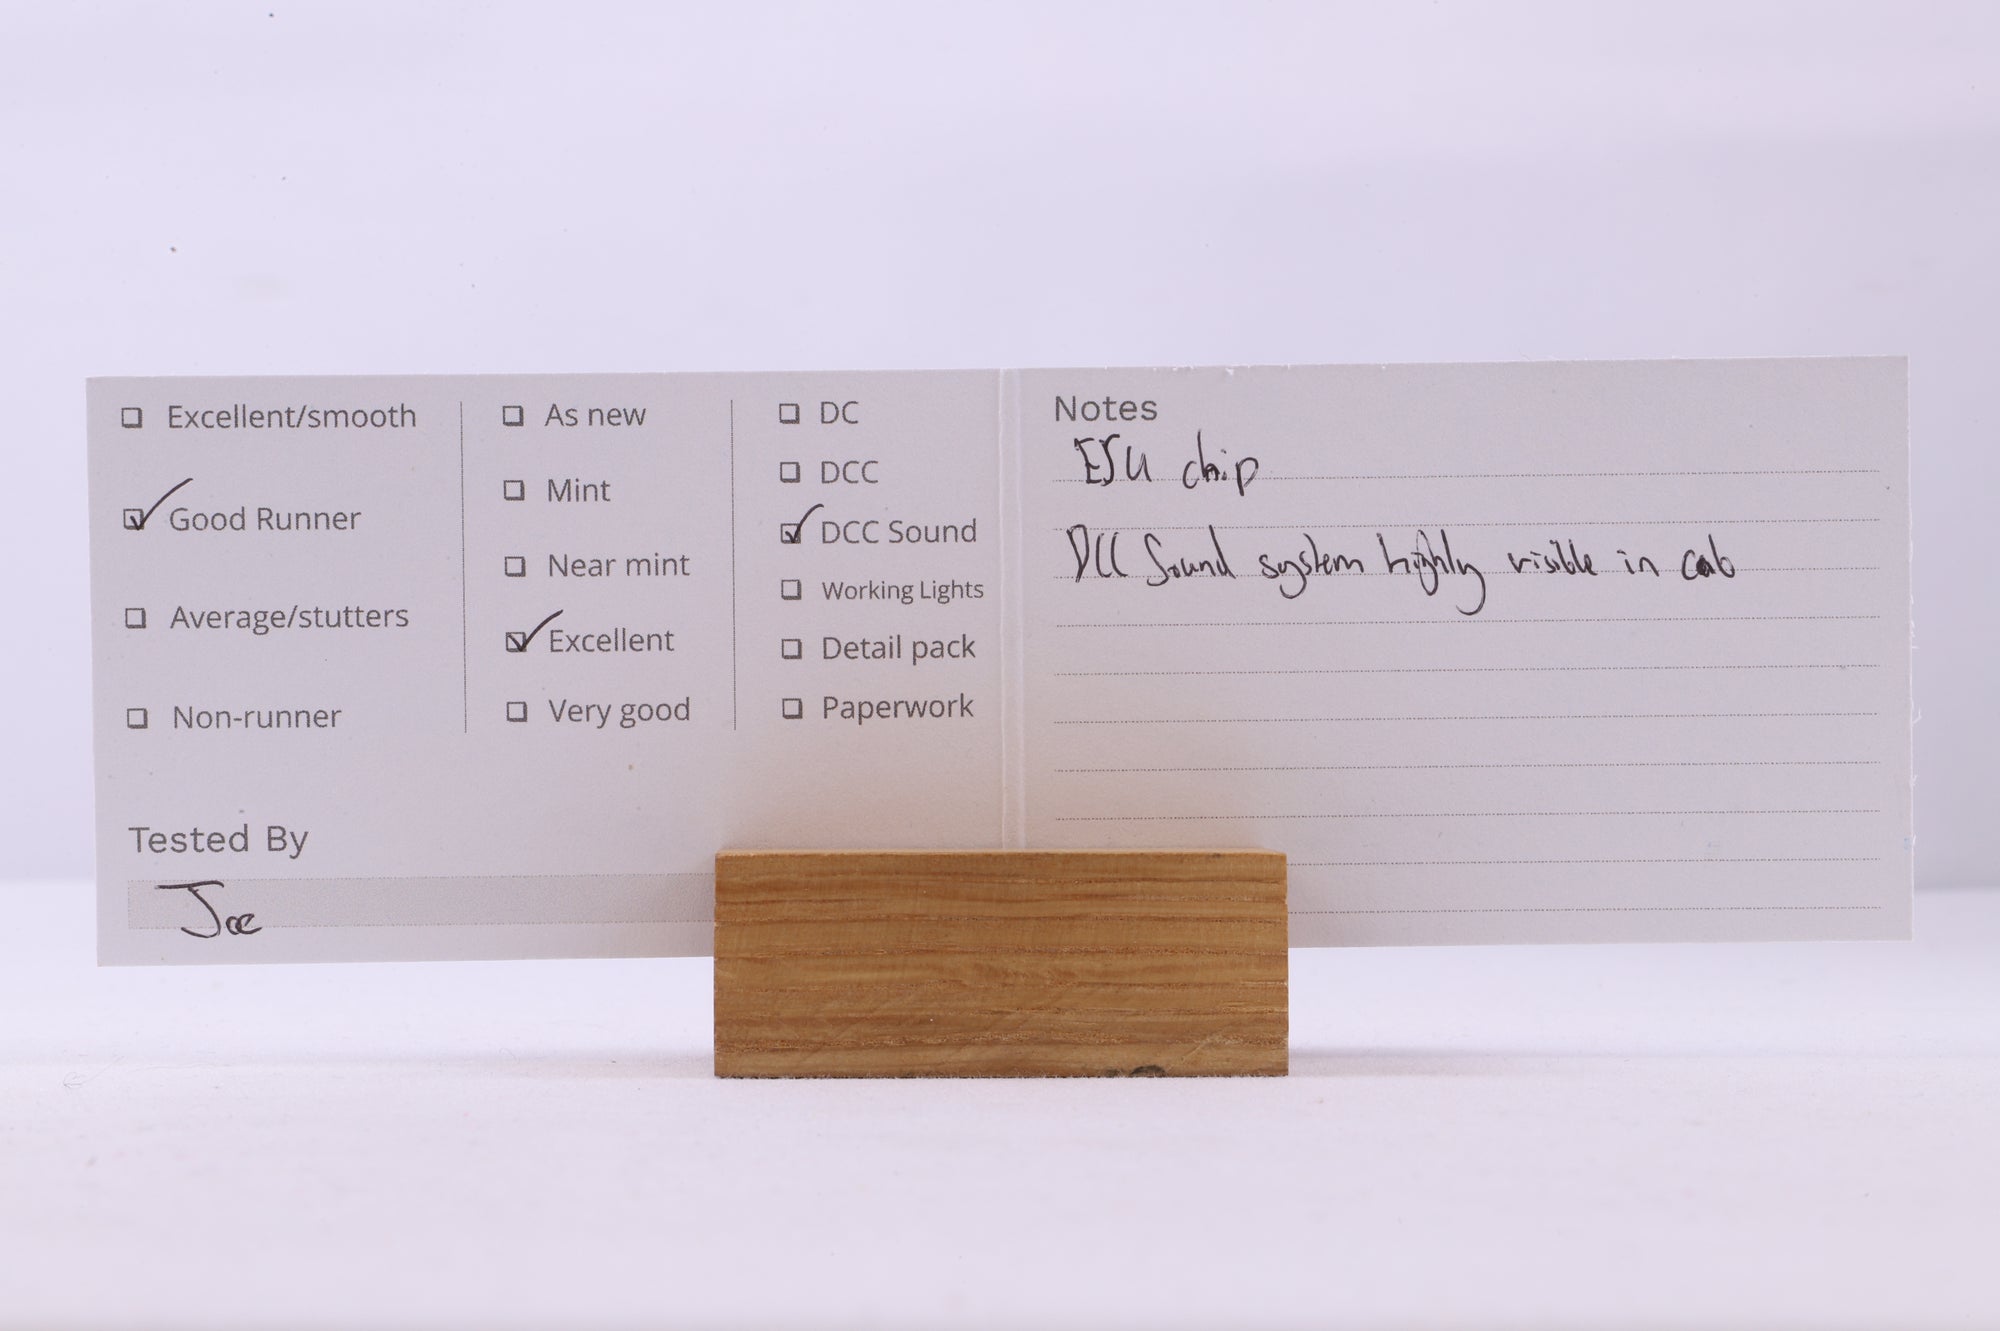 Excellent/smooth
Good Runner
Average/stutters
Non-runner
As new
Mint
Near mint
Excellent
Very good
DC
DCC
DCC Sound
Working Lights
Detail pack
Paperwork
Tested By
Joe
Notes
ESU chip
DCC Sound system highly visible in cab